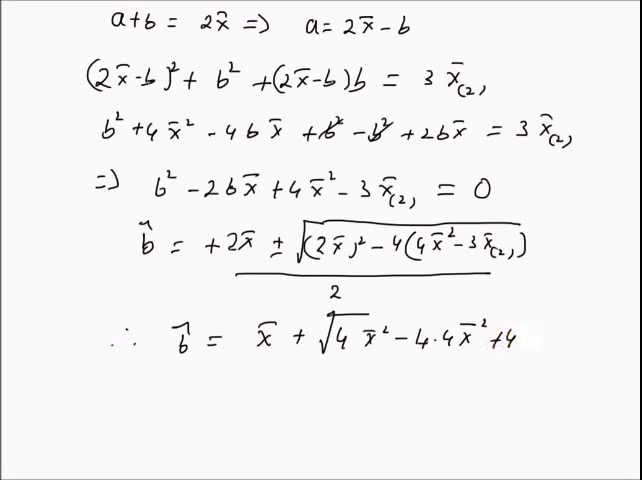 a+b = 2x̄ => a = 2x̄ - b
(2x̄-b)² + b² + (2x̄-b)b = 3 x̄(2),
b² + 4x̄² - 4bx̄ + b² - b² + 2bx̄ = 3 x̄(2),
=> b² - 2bx̄ + 4x̄² - 3x̄(2), = 0
b̂ = +2x̄ ± √(2x̄)² - 4(4x̄² - 3x̄(2),)
2
∴ b̂ = x̄ + √4x̄² - 4.4x̄² + 4